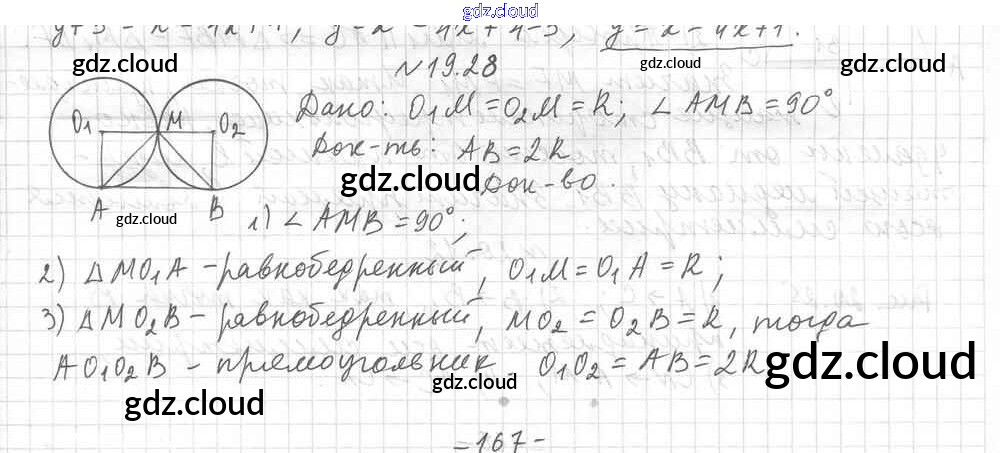 gdz.cloud
gdz.cloud gdz.cloud gdz.cloud
y = x² - 4x + 1.
№ 19.28
O₁ M O₂
A B
Дано: O₁M = O₂M = R; ∠AMB = 90°
Док-ть: AB = 2R
gdz.cloud gdz.cloud
Док-во.
gdz.cloud
1) ∠AMB = 90°;
2) △MO₁A - равнобедренный, O₁M = O₁A = R;
3) △MO₂B - равнобедренный, MO₂ = O₂B = R, тогда
AO₁O₂B - прямоугольник. O₁O₂ = AB = 2R
gdz.cloud gdz.cloud gdz.cloud
- 167 -